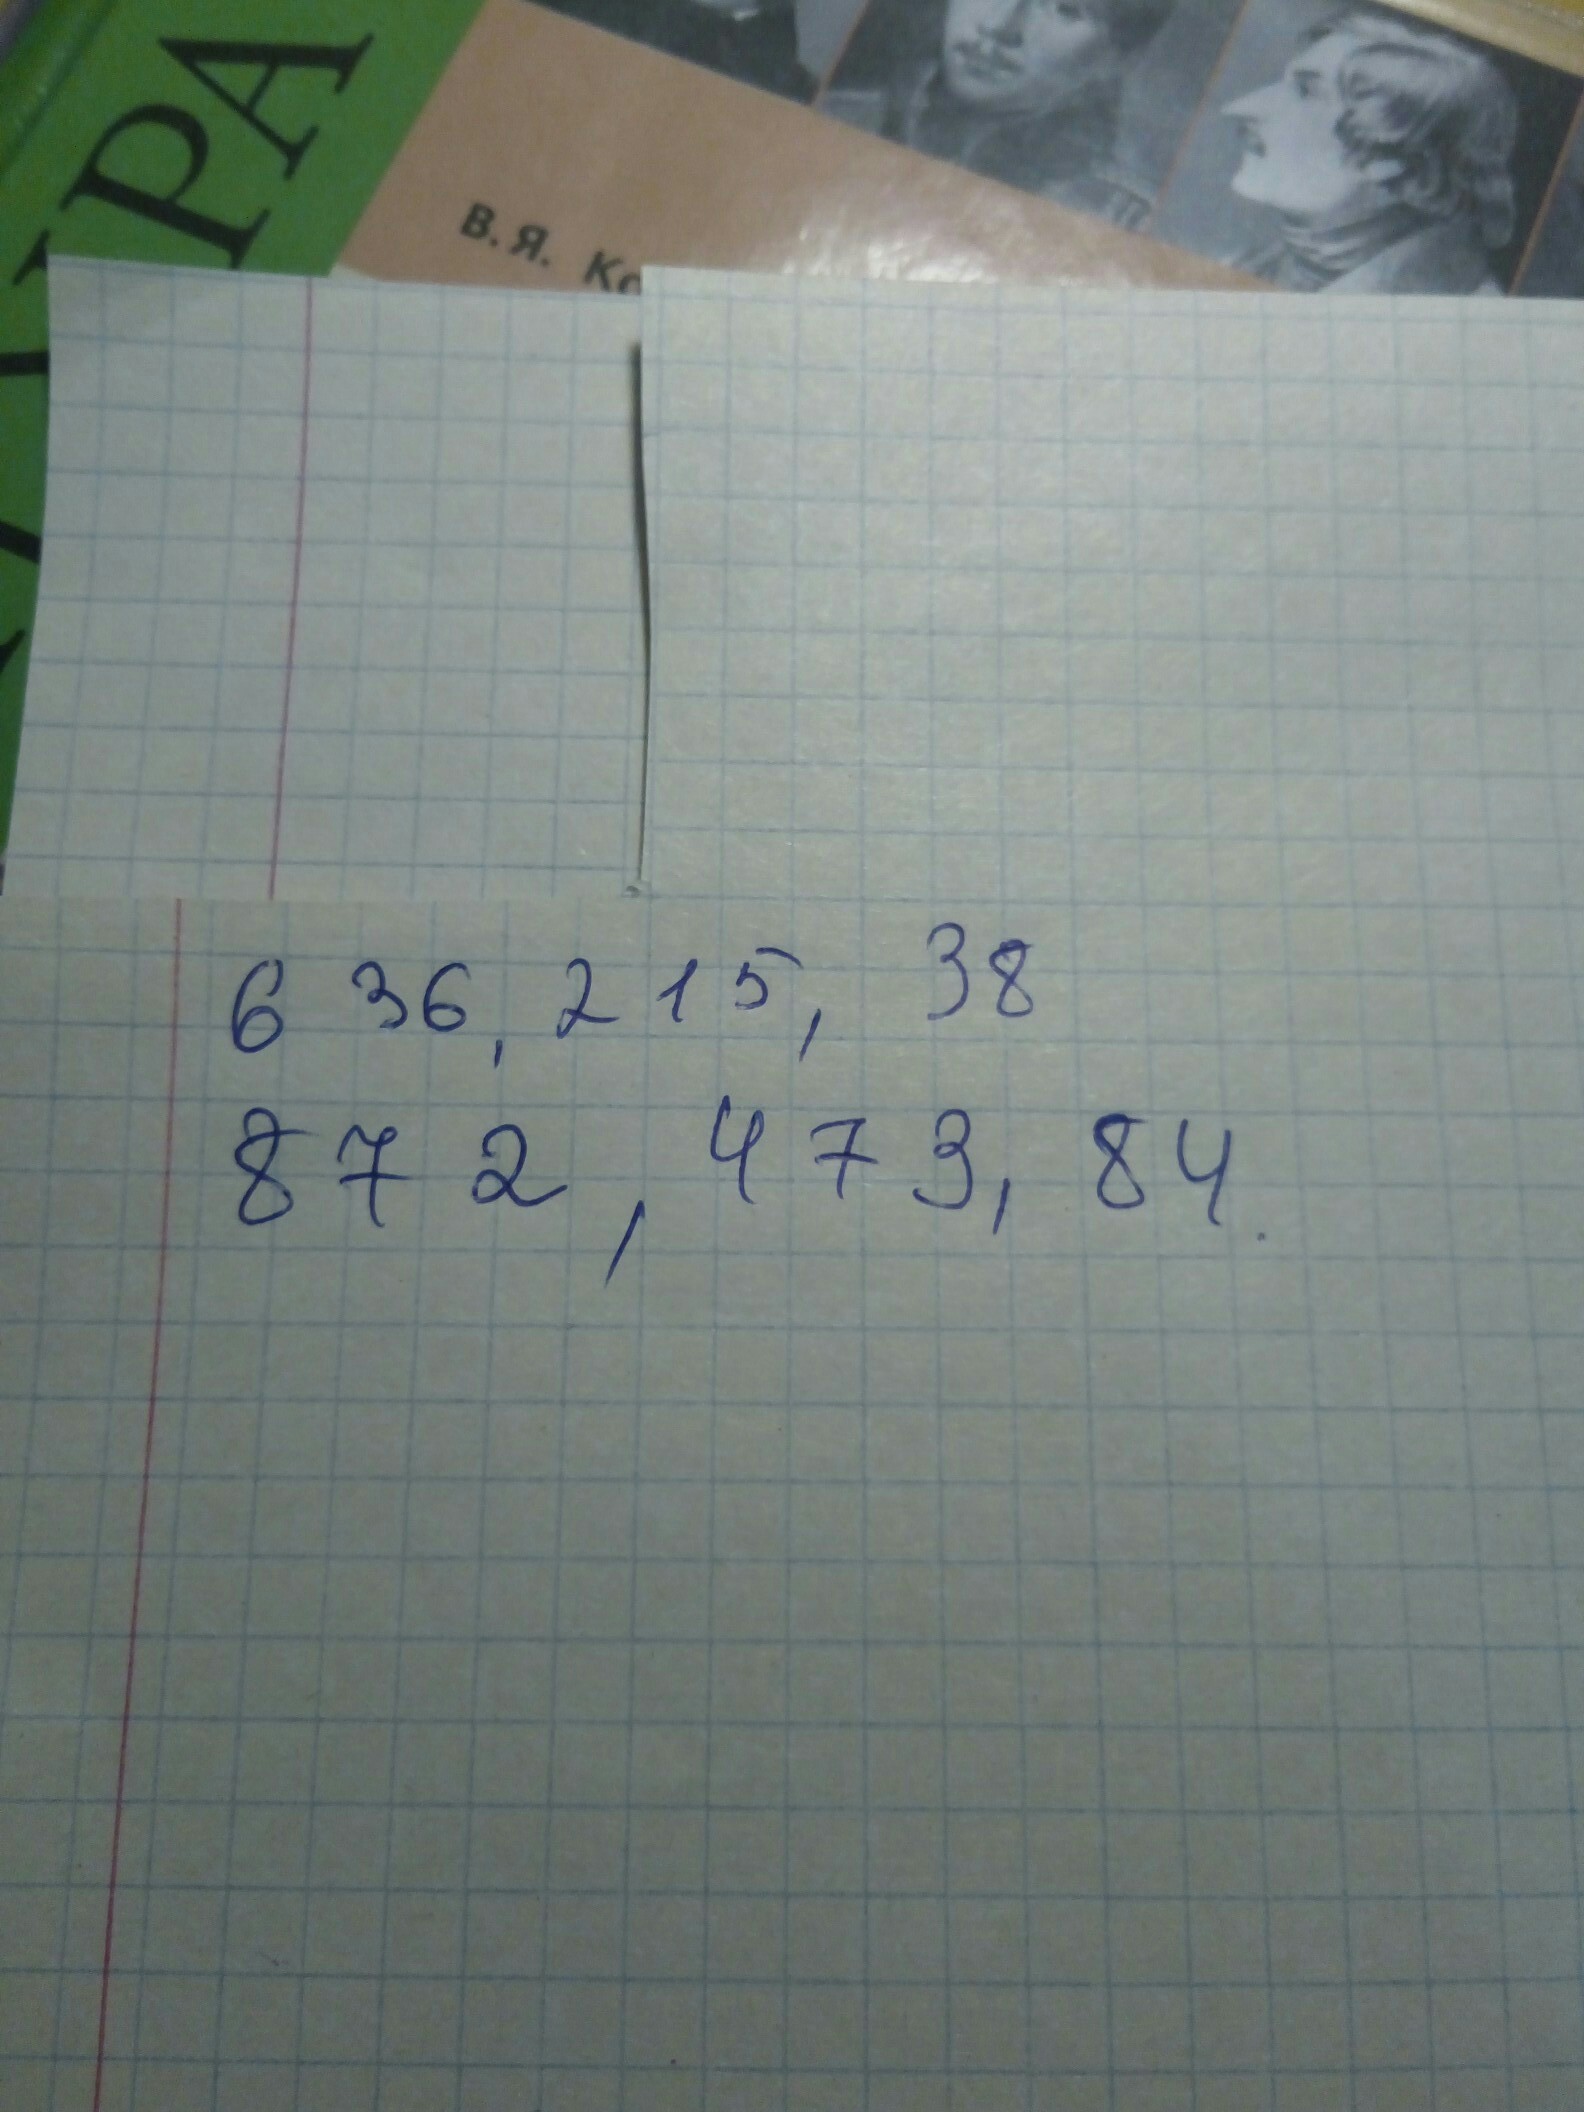 В. Я. Ко
636, 215, 38
872, 473, 84.